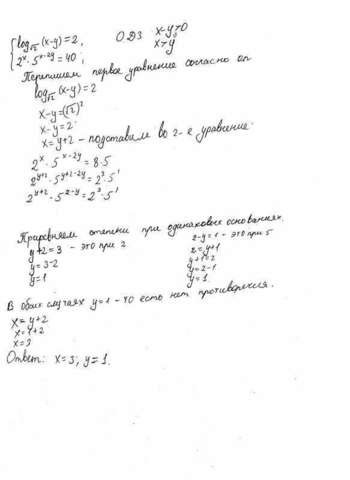 {log√2 (x-y) = 2, ОДЗ x-y>0
{2^x · 5^(x-2y) = 40; x>y
Перепишем первое уравнение согласно оп
log√2 (x-y) = 2
x-y = (√2)²
x-y = 2
x = y+2 - подставим во 2-е уравнение:
2^x · 5^(x-2y) = 8·5
2^(y+2) · 5^(y+2-2y) = 2³·5¹
2^(y+2) · 5^(2-y) = 2³·5¹
Приравняем степени при одинаковых основаниях.
y+2=3 - это при 2 2-y=1 - это при 5
y=3-2 2=y+1
y=1 y+1=2
y=2-1
y=1
В обоих случаях y=1 - то есть нет противоречия.
x=y+2
x=1+2
x=3
Ответ: x=3; y=1.